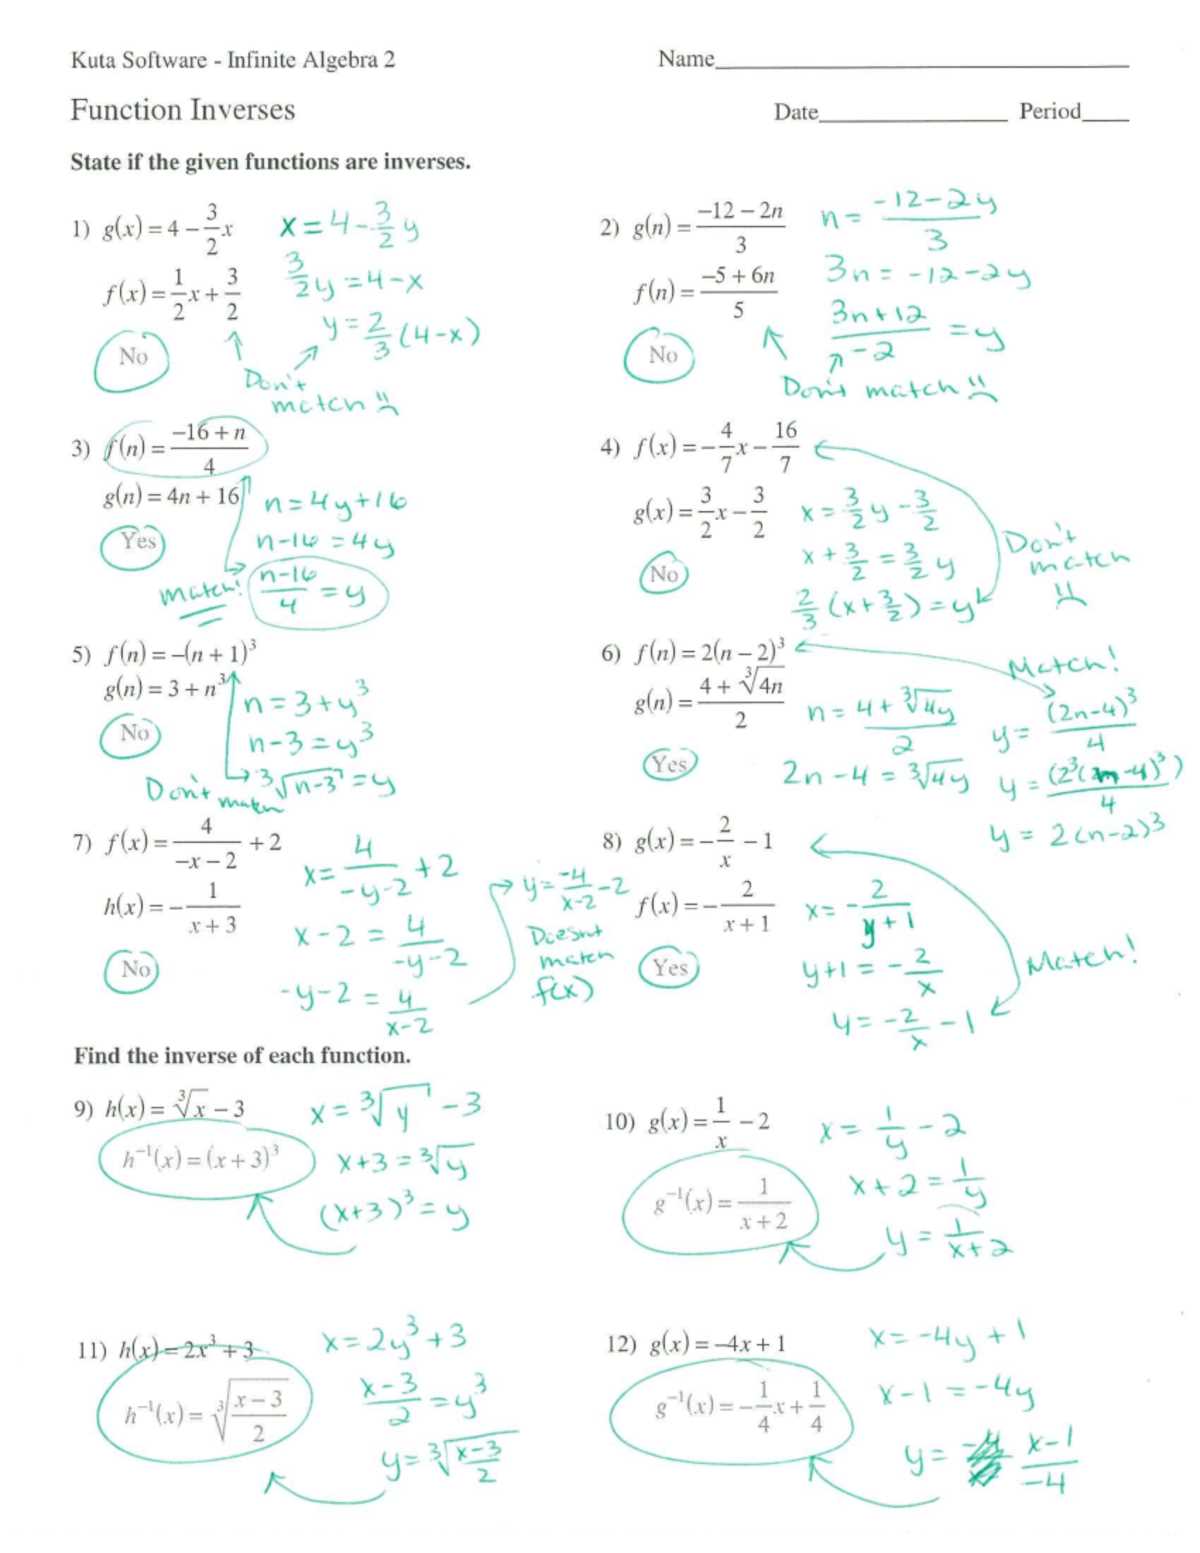 Kuta Software - Infinite Algebra 2
Name
Function Inverses
Date Period
State if the given functions are inverses.
1) g(x) = 4 − 3/2 x
f(x) = 1/2 x + 3/2
No
x = 4 - 3/2 y
3/2 y = 4 - x
y = 2/3 (4-x)
Don't
match
2) g(n) = (−12 − 2n)/3
f(n) = (−5 + 6n)/5
No
n = (-12-2y)/3
3n = -12-2y
(3n+12)/-2 = y
Don't match
3) f(n) = (−16 + n)/4
g(n) = 4n + 16
Yes
n = 4y+16
n-16 = 4y
match! (n-16)/4 = y
4) f(x) = −4/7 x − 16/7
g(x) = 3/2 x − 3/2
No
x = 3/2 y - 3/2
x + 3/2 = 3/2 y
2/3 (x+3/2) = y
Don't
match
5) f(n) = −(n + 1)³
g(n) = 3 + n³
No
n = 3+y³
n-3 = y³
∛(n-3) = y
Don't match
6) f(n) = 2(n − 2)³
g(n) = (4 + ∛(4n))/2
Yes
n = (4+∛(4y))/2
2n-4 = ∛(4y)
Match!
y = (2n-4)³/4
y = (2³(n-4)³)/4
y = 2(n-2)³
7) f(x) = 4/(−x − 2) + 2
h(x) = −1/(x + 3)
No
x = 4/(-y-2) + 2
x-2 = 4/(-y-2)
-y-2 = 4/(x-2)
y = -4/(x-2) - 2
Doesnt
match
f(x)
8) g(x) = −2/x − 1
f(x) = −2/(x + 1)
Yes
x = -2/(y+1)
y+1 = -2/x
y = -2/x - 1
Match!
Find the inverse of each function.
9) h(x) = ∛x − 3
h⁻¹(x) = (x + 3)³
x = ∛y - 3
x+3 = ∛y
(x+3)³ = y
10) g(x) = 1/x − 2
g⁻¹(x) = 1/(x + 2)
x = 1/y - 2
x+2 = 1/y
y = 1/(x+2)
11) h(x) = 2x³ + 3
h⁻¹(x) = ∛((x − 3)/2)
x = 2y³+3
(x-3)/2 = y³
y = ∛((x-3)/2)
12) g(x) = −4x + 1
g⁻¹(x) = −1/4 x + 1/4
x = -4y + 1
x-1 = -4y
y = (x-1)/-4